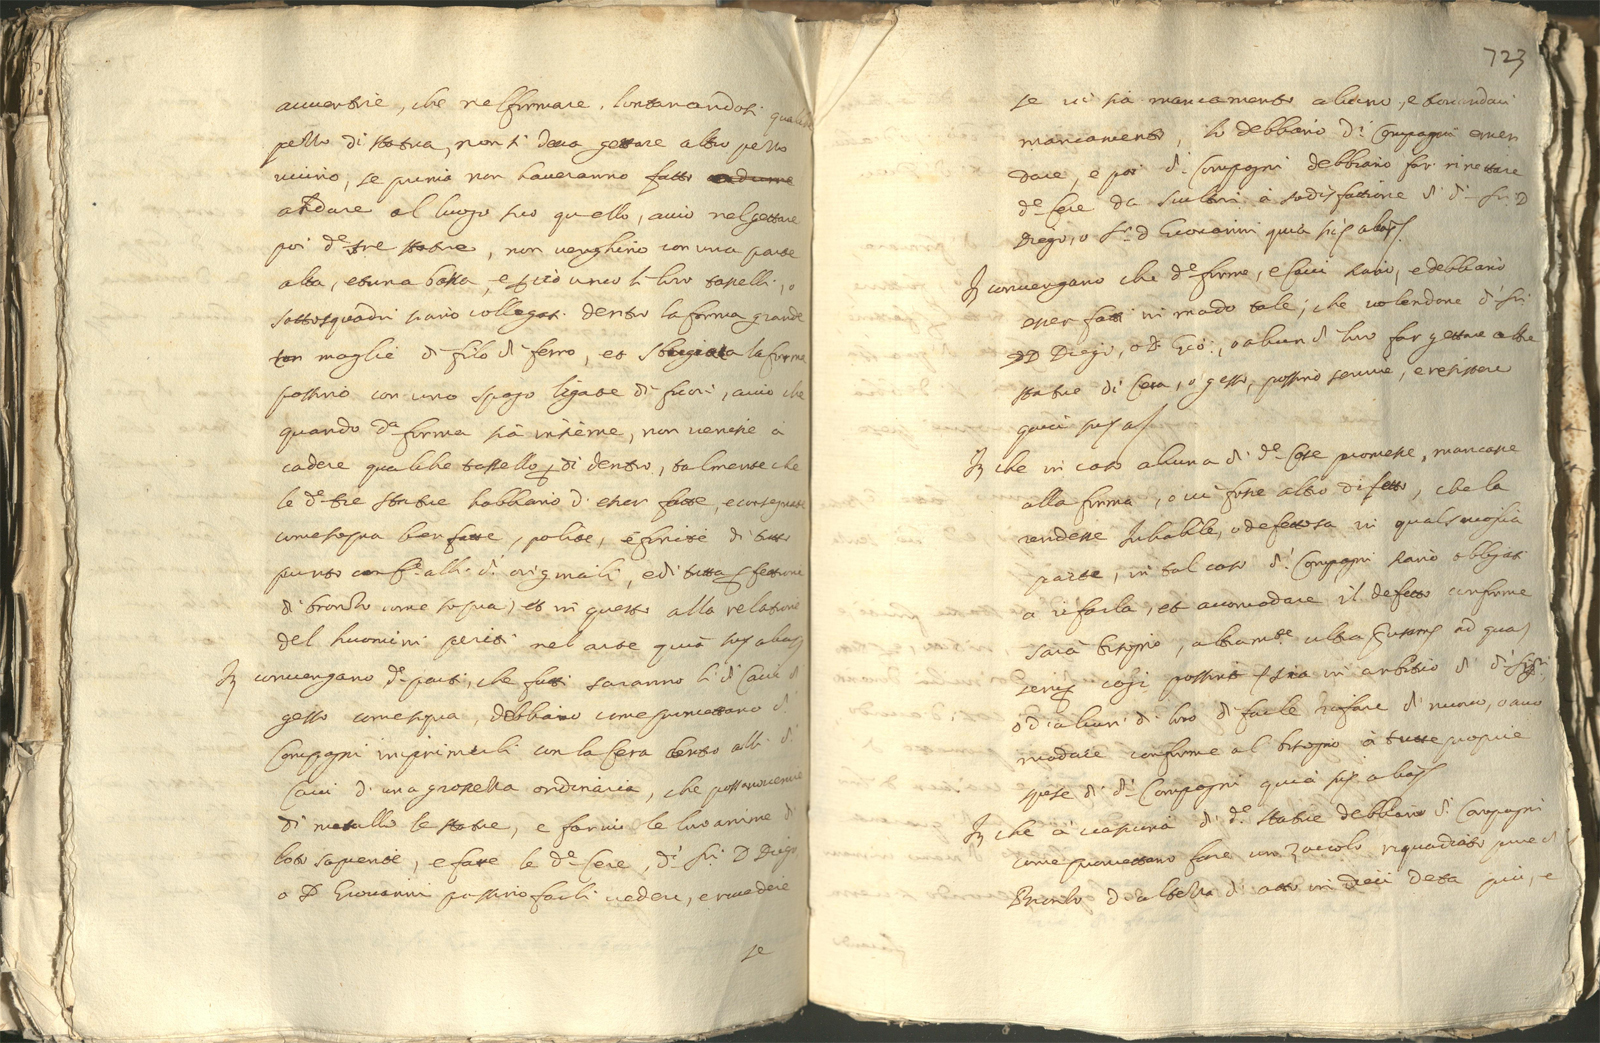 auuertire, che nel formare, lontanandosi qualche
pezzo di statua, non si deua gettare altro pezzo
uicino, se prima non haueranno fatto
andare al luogo suo quello, acciò nel gettare
poi d.e tre statue, non venghino con una parte
alta, et una bassa, e perciò li loro tasselli, o
sottosquadri siano collegati dentro la forma grande
con maglie di filo di ferro, et la forma
possino con uno spago ligate di fuori, acciò che
quando d.a forma sia insieme, non venisse a
cadere qualche tassello di dentro, talmente che
le d.e tre statue habbiano d'esser fatte, e consegnate
come sopra ben fatte, polite, e finite di tutto
punto conf.e alli d.i originali, e di tutta perfettione
di bronzo come sopra, et in questo alla relatione
del huomini periti nel arte quia sic
It convengano d.e parti, che fatti saranno li d.i Caui di
gesso come sopra, debbiano come promettano d.i
Compagni imprimerli con la Cera dentro alli d.i
Caui di una grossezza ordinaria, che possano uenire
di metallo le statue, e farui le loro anime di
loto sapiente, e fatte le d.e Cere, d.i Sri D Diego
o D Giovanni possino farli uedere, e riuedere
se
723
se ui sia mancamento alcuno, e trouandoui
mancamento, lo debbano d.i Compagni emen
dare, e poi d.i Compagni debbiano far rinettare
d.e Cere da Scultori à sodisfattione di d.i Sri D
Diego, o Sr D Giovanni quia sic
It convengano che d.e forme, e Caui siano, e debbiano
esser fatti in modo tale, che uolendone d.i Sri
DD Diego, o D. Gio:, o alcun di loro far gettare altre
statue di Cera, o gesso, possino seruire, e resistere
quia sic
It che in caso alcuna di d.e Cose promesse, mancasse
alla forma, o ui fosse altro difetto, che la
rendesse inhabile, o defettosa in qualsiuoglia
parte, in tal caso d.i Compagni siano obligati
a rifarla, et accomodare il defetto conforme
sarà bisogno, altram.te ultra
sia in arbitrio di d.i Sig.ri
o di alcuni di loro di farle rifare di nuouo, o acco
modare conforme al bisogno à tutte proprie
spese di d.i Compagni quia sic
It che à ciascuna di d.e statue debbiano d.i Compagni
come promettano fare uno Zoccolo riquadrato pure di
Bronzo d'altezza di otto in dieci deta più, e